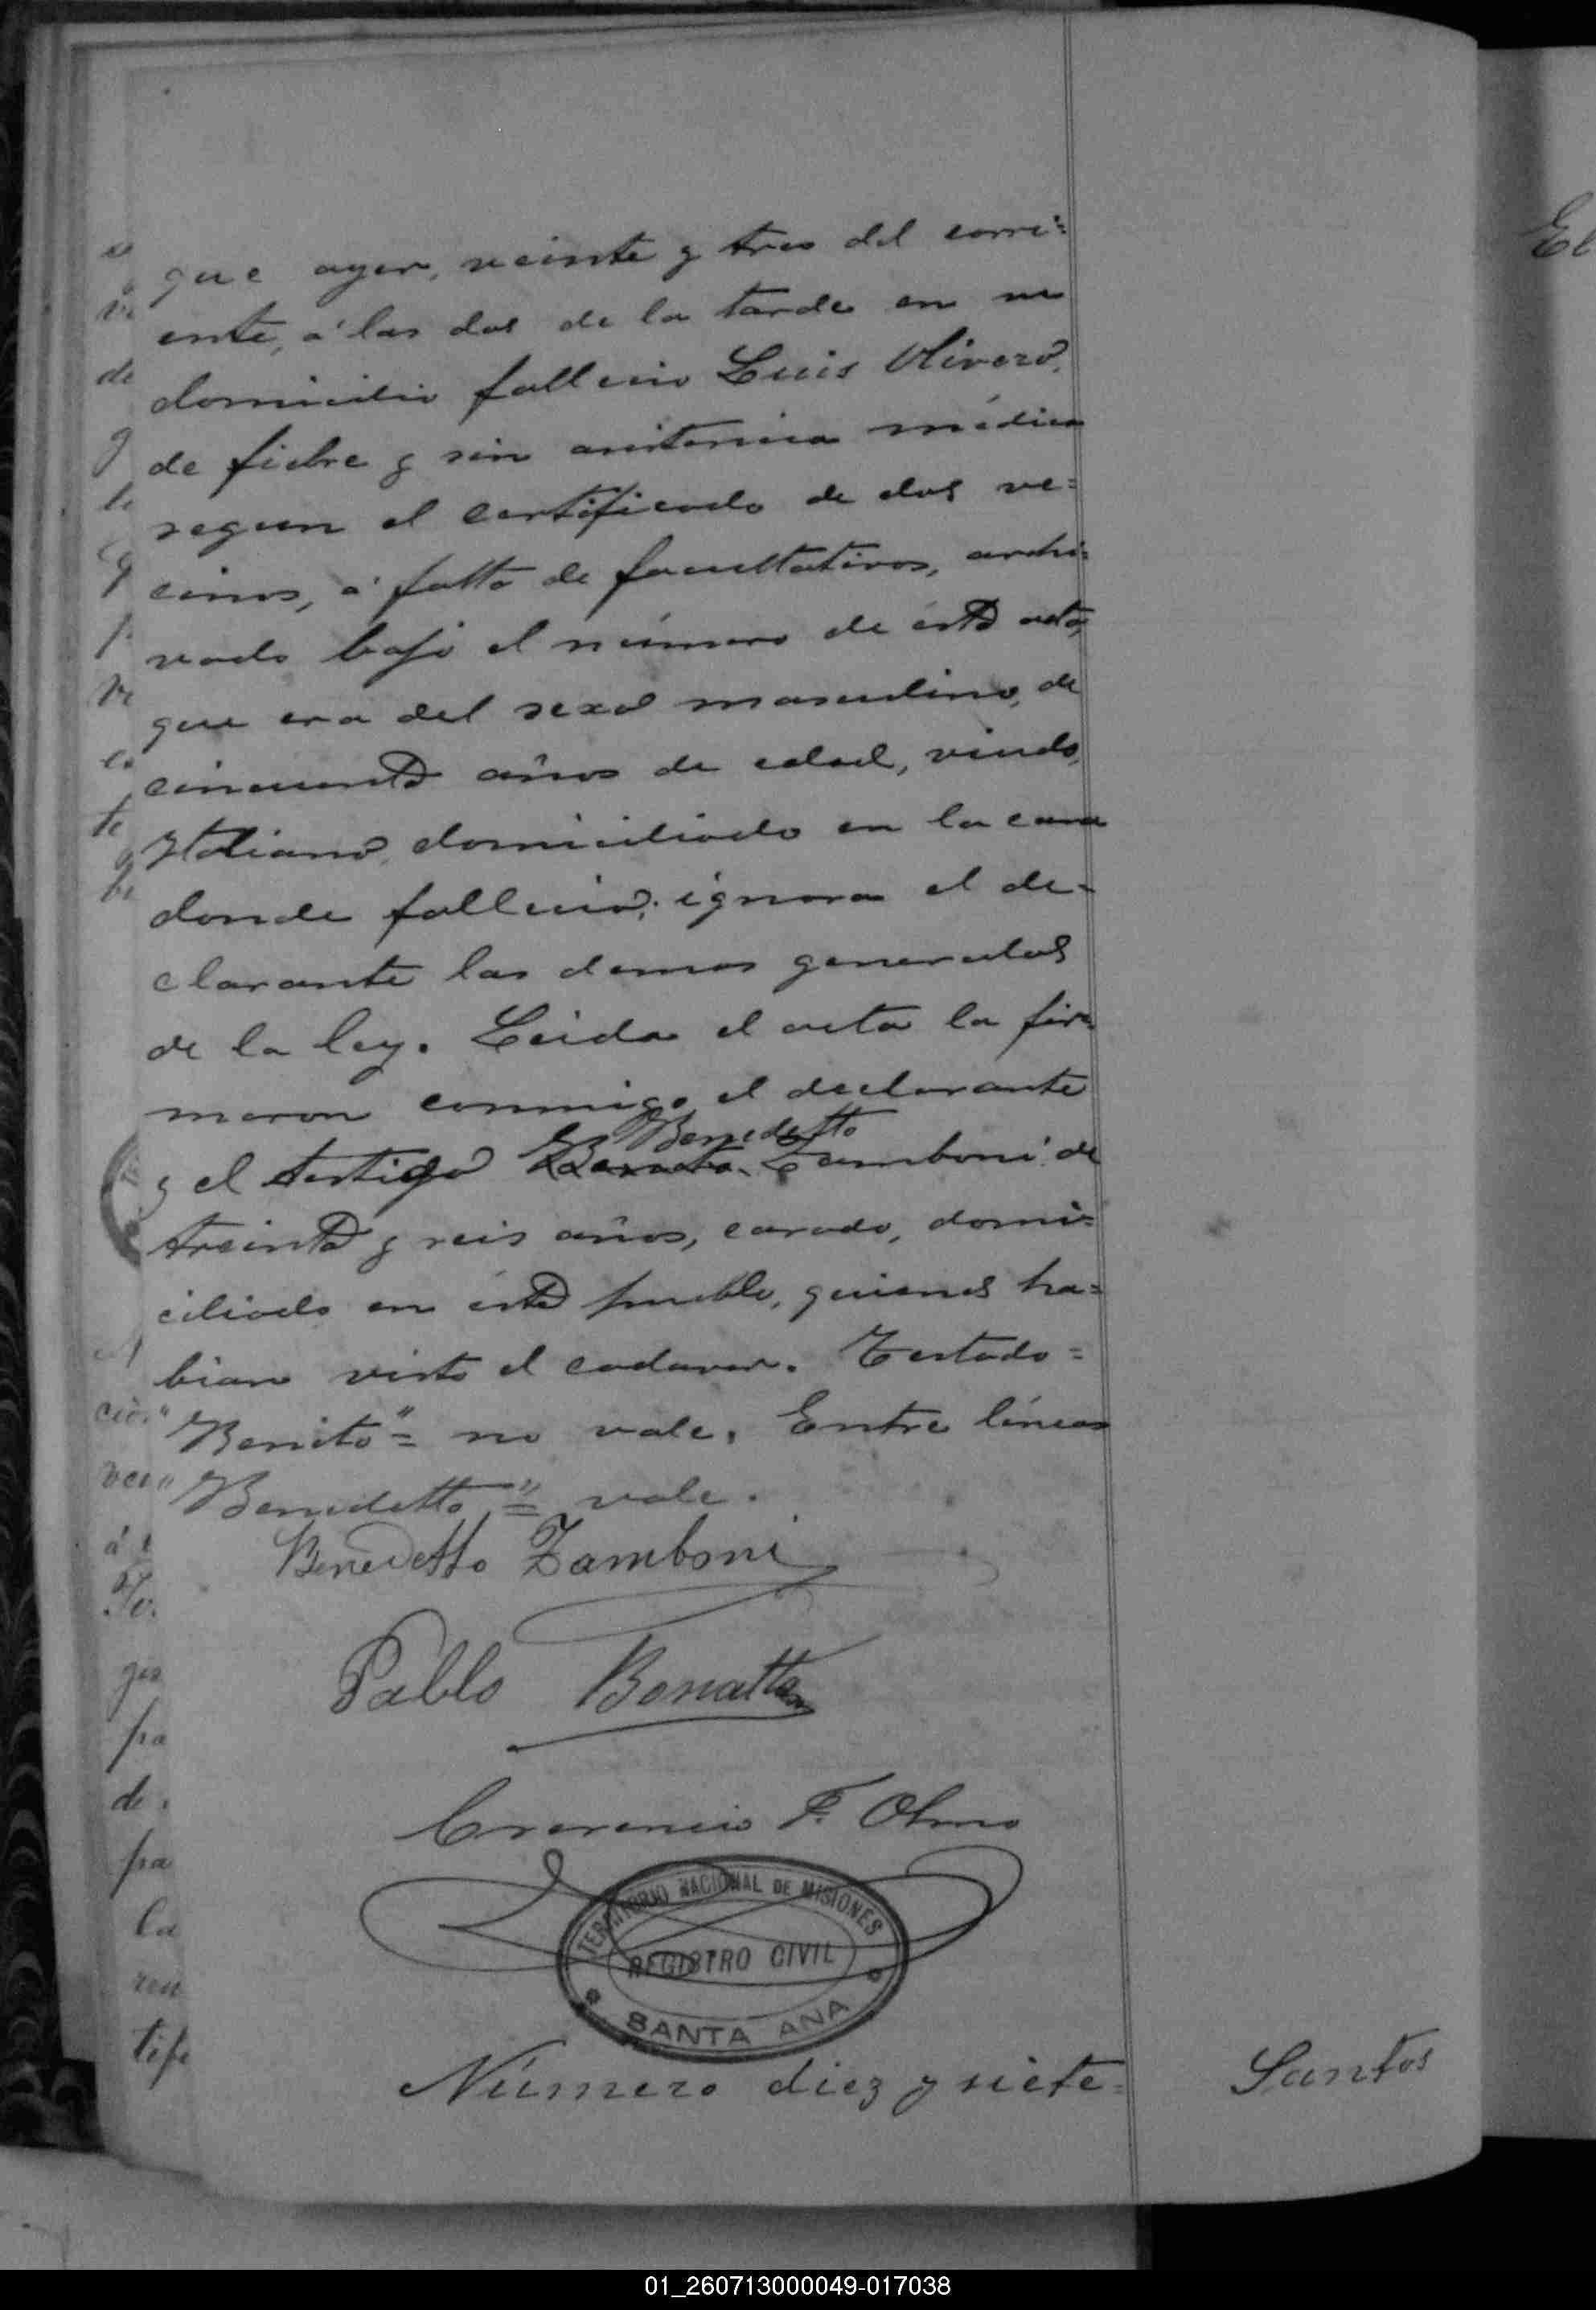 que ayer, veinte y tres del corri=
ente, á las dos de la tarde en su
domicilio fallecio Luis Olivero,
de fiebre y sin asistencia médica
segun el certificado de dos ve=
cinos, á falta de facultativos, archi=
vado bajo el número de ésta acta,
que era del sexo masculino, de
cincuenta años de edad, viudo,
Italiano, domiciliado en la casa
donde fallecio; ignora el de-
clarante las demas generales
de la ley. Leida el acta la fir=
maron conmigo el declarante
Benedetto
y el testigo Zamboni de
treinta y seis años, casado, domi=
ciliado en éste pueblo, quienes ha=
bian visto el cadaver. Testado=
"Benito"= no vale. Entre lineas
"Benedetto"= vale.
Benedetto Zamboni
Pablo Bonatto
F. Olmo
TERRITORIO NACIONAL DE MISIONES
REGISTRO CIVIL
SANTA ANA
Número diez y siete=
Santos
El
01_260713000049-017038